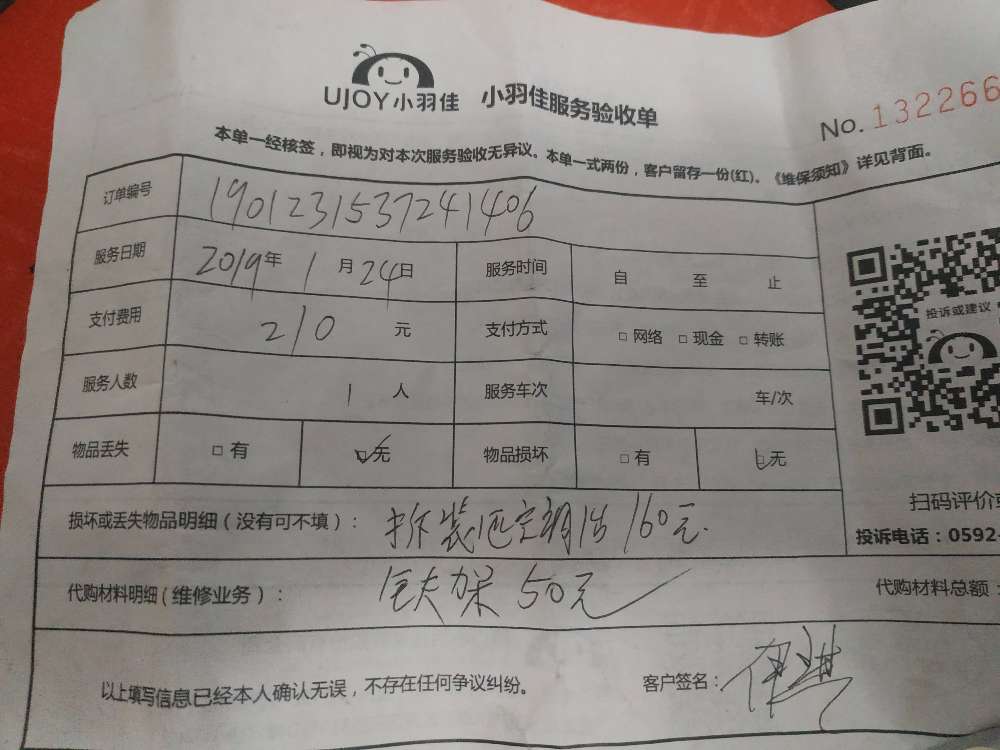 UJOY小羽佳 小羽佳服务验收单
No. 132266
本单一经核签，即视为对本次服务验收无异议。本单一式两份，客户留存一份(红)。《维保须知》详见背面。
订单编号 1901231537241406
服务日期 2019年 1月 24日 服务时间 自 至 止
支付费用 210 元 支付方式 □网络 □现金 □转账
投诉或建议
服务人数 1 人 服务车次 车/次
物品丢失 □有 ☑无 物品损坏 □有 ☑无
扫码评价
损坏或丢失物品明细（没有可不填）： 拆装 匹空调 160元.
投诉电话：0592-
代购材料明细（维修业务）： 架 50元
代购材料总额：
以上填写信息已经本人确认无误，不存在任何争议纠纷。 客户签名：